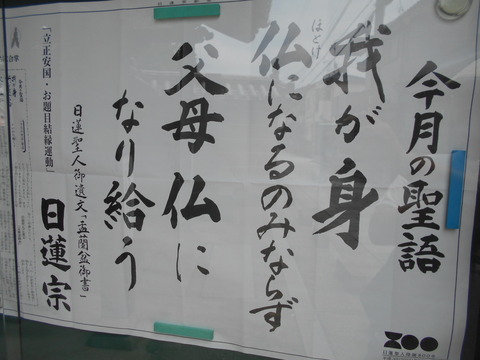 今月の聖語
我が身
仏になるのみならず
ほとけ
父母仏に
なり給う
日蓮聖人御遺文「盂蘭盆御書」
「立正安国・お題目結縁運動」
日蓮宗